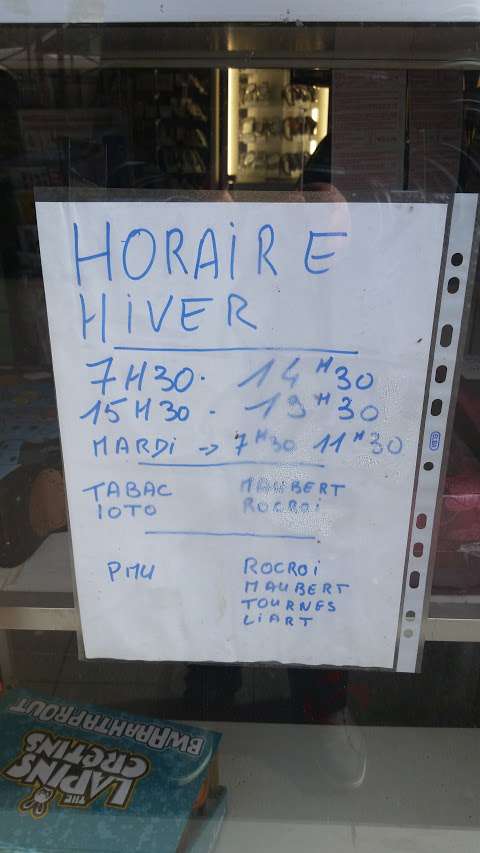 HORAIRE
HIVER
7H30. 14H30
15H30. 19H30
MARDI -> 7H30 11H30
TABAC MAUBERT
lOTO ROCROi
PMU ROCROi
MAUBERT
TOURNES
LiART
BWAAAHTAPROUT
THE
LAPINS
CRETINS